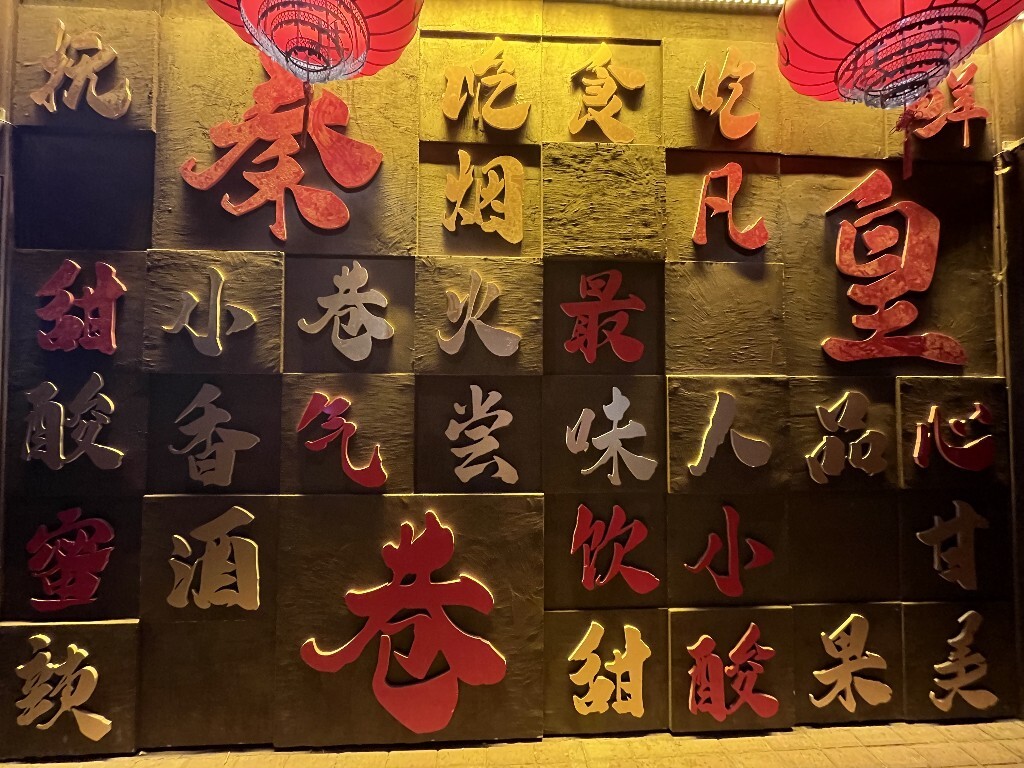 秦 吃 食 吃 鲜
烟 凡 皇
甜 小 巷 火 最
酸 香 气 尝 味 人 品 心
蜜 酒 巷 饮 小 甘
辣 甜 酸 果 美